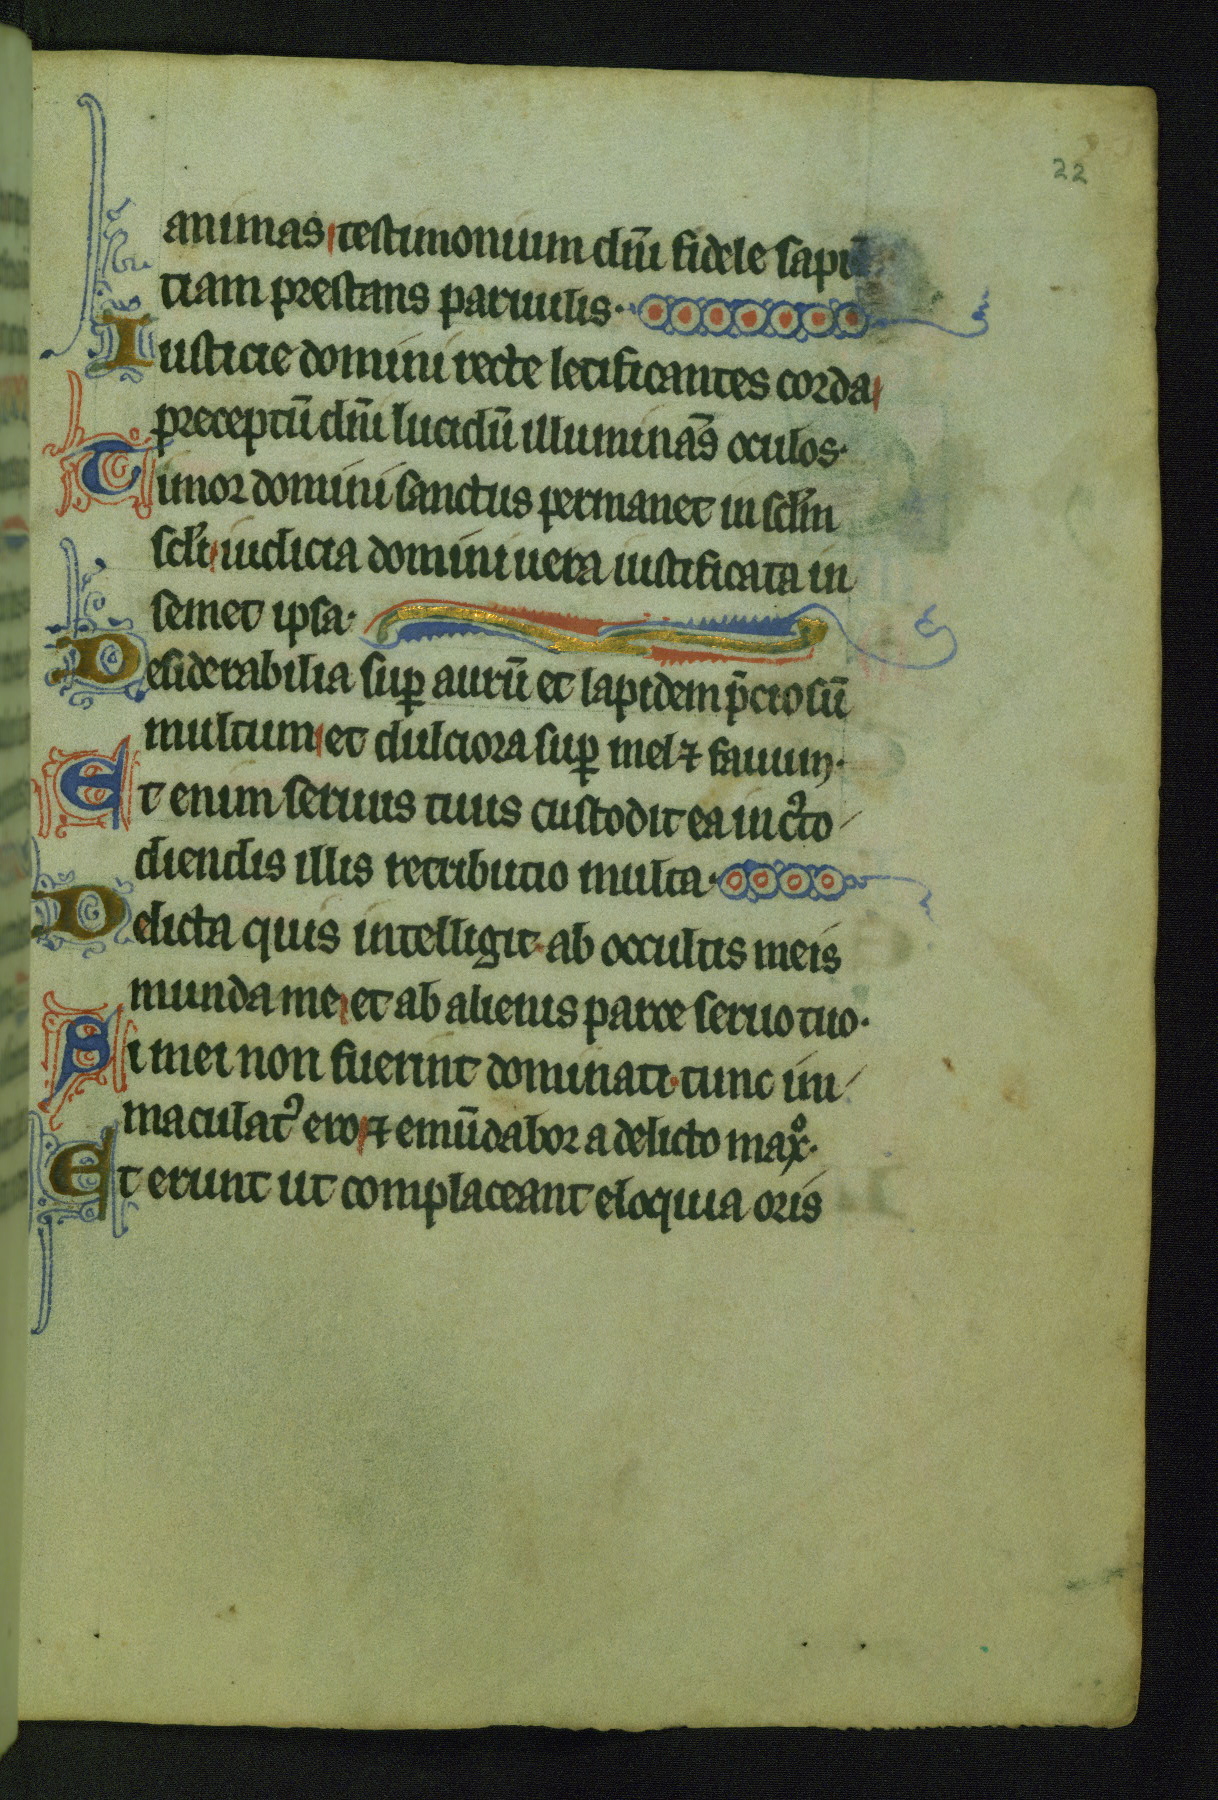 22
animas testimonium dñi fidele sapiē
tiam prestans paruulis·
Iusticie domini recte letificantes corda
preceptū dñi lucidū illuminãs oculos·
Timor domini sanctus permanet in sclm
scli iudicia domini uera iustificata in
semet ipsa·
Desiderabilia suꝑ aurū et lapidem p̃ciosū
multum et dulciora suꝑ mel ⁊ fauum·
Et enim seruus tuus custodit ea in c᷒to
diendis illis retributio multa·
Delicta quis intelligit· ab occultis meis
munda me et ab alienis parce seruo tuo·
Si mei non fuerint dominati· tunc im
maculatꝰ ero ⁊ emūdabor a delicto maxͦ·
Et erunt ut complaceant eloquia oris